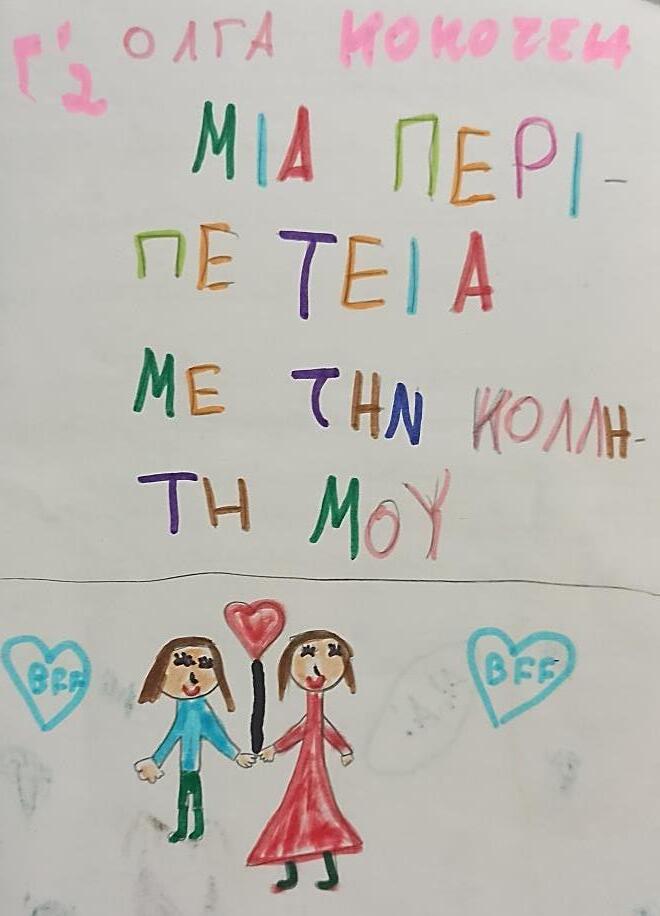 Γ'2 ΟΛΓΑ ΚΟΚΟΤΣΗ
ΜΙΑ ΠΕΡΙ-
ΠΕΤΕΙΑ
ΜΕ ΤΗΝ ΚΟΛΛΗ-
ΤΗ ΜΟΥ
BFF BFF